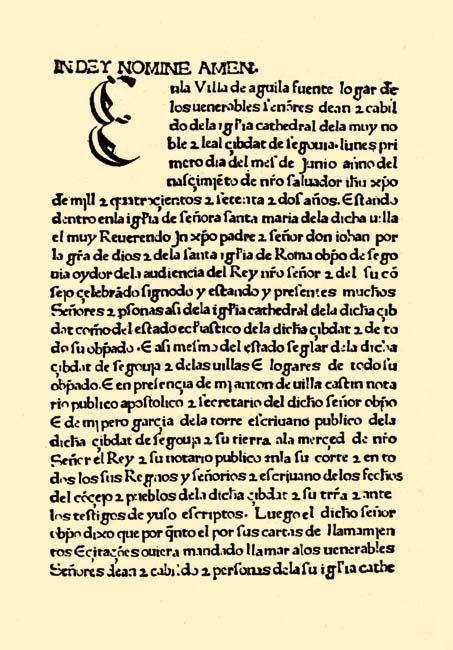 IN DEY NOMINE AMEN.
Enla Villa de aguila fuente logar de
los uenerables señores dean ⁊ cabil
do dela igłia cathedral dela muy no
ble ⁊ leal çibdat de segouia. lunes pri
mero dia del mes de Junio anno del
nasçimiẽto de nr̃o saluador ihũ xp̃o
de mjll ⁊ quatrxçientos ⁊ setenta ⁊ dos años. Estando
dentro enla igłia de señora santa maria dela dicha uilla
el muy Reuerendo Jn xp̃o padre ⁊ señor don iohan por
la gr̃a de dios ⁊ dela santa igłia de Roma obp̃o de sego
uia oydor dela audiencia del Rey nr̃o señor ⁊ del su cõ
sejo çelebrãdo signodo y estando y presentes muchos
Señores ⁊ p̃sonas asi dela igłia cathedral dela dicha çib
dat com̃o del estado ecłiastico dela dicha çibdat ⁊ de to
do su obp̃ado . E asi mesmo del estado seglar dela dicha
çibdat de segouja ⁊ delas uillas E logares de todo su
obp̃ado. E en presençia de mj anton de uilla castin nota
rio publico apostolico ⁊ secretario del dicho señor obp̃o
E de mj pero garçia dela torre escriuano publico dela
dicha çibdat de segouja ⁊ su tierra ala merçed de nr̃o
Señor el Rey ⁊ su notario publico enla su corte ⁊ en to
dos los sus Regnos y señorios ⁊ escrjuano delos fechos
del cõçejo ⁊ pueblos dela dicha çibdat ⁊ su trr̃a ⁊ ante
los testigos de yuso escriptos. Luego el dicho señor
obp̃o dixo que por q̃nto el por sus cartas de llamamjen
tos E çitações ouiera mandado llamar alos uenerables
Señores dean ⁊ cabildo ⁊ personas dela su igłia cathe